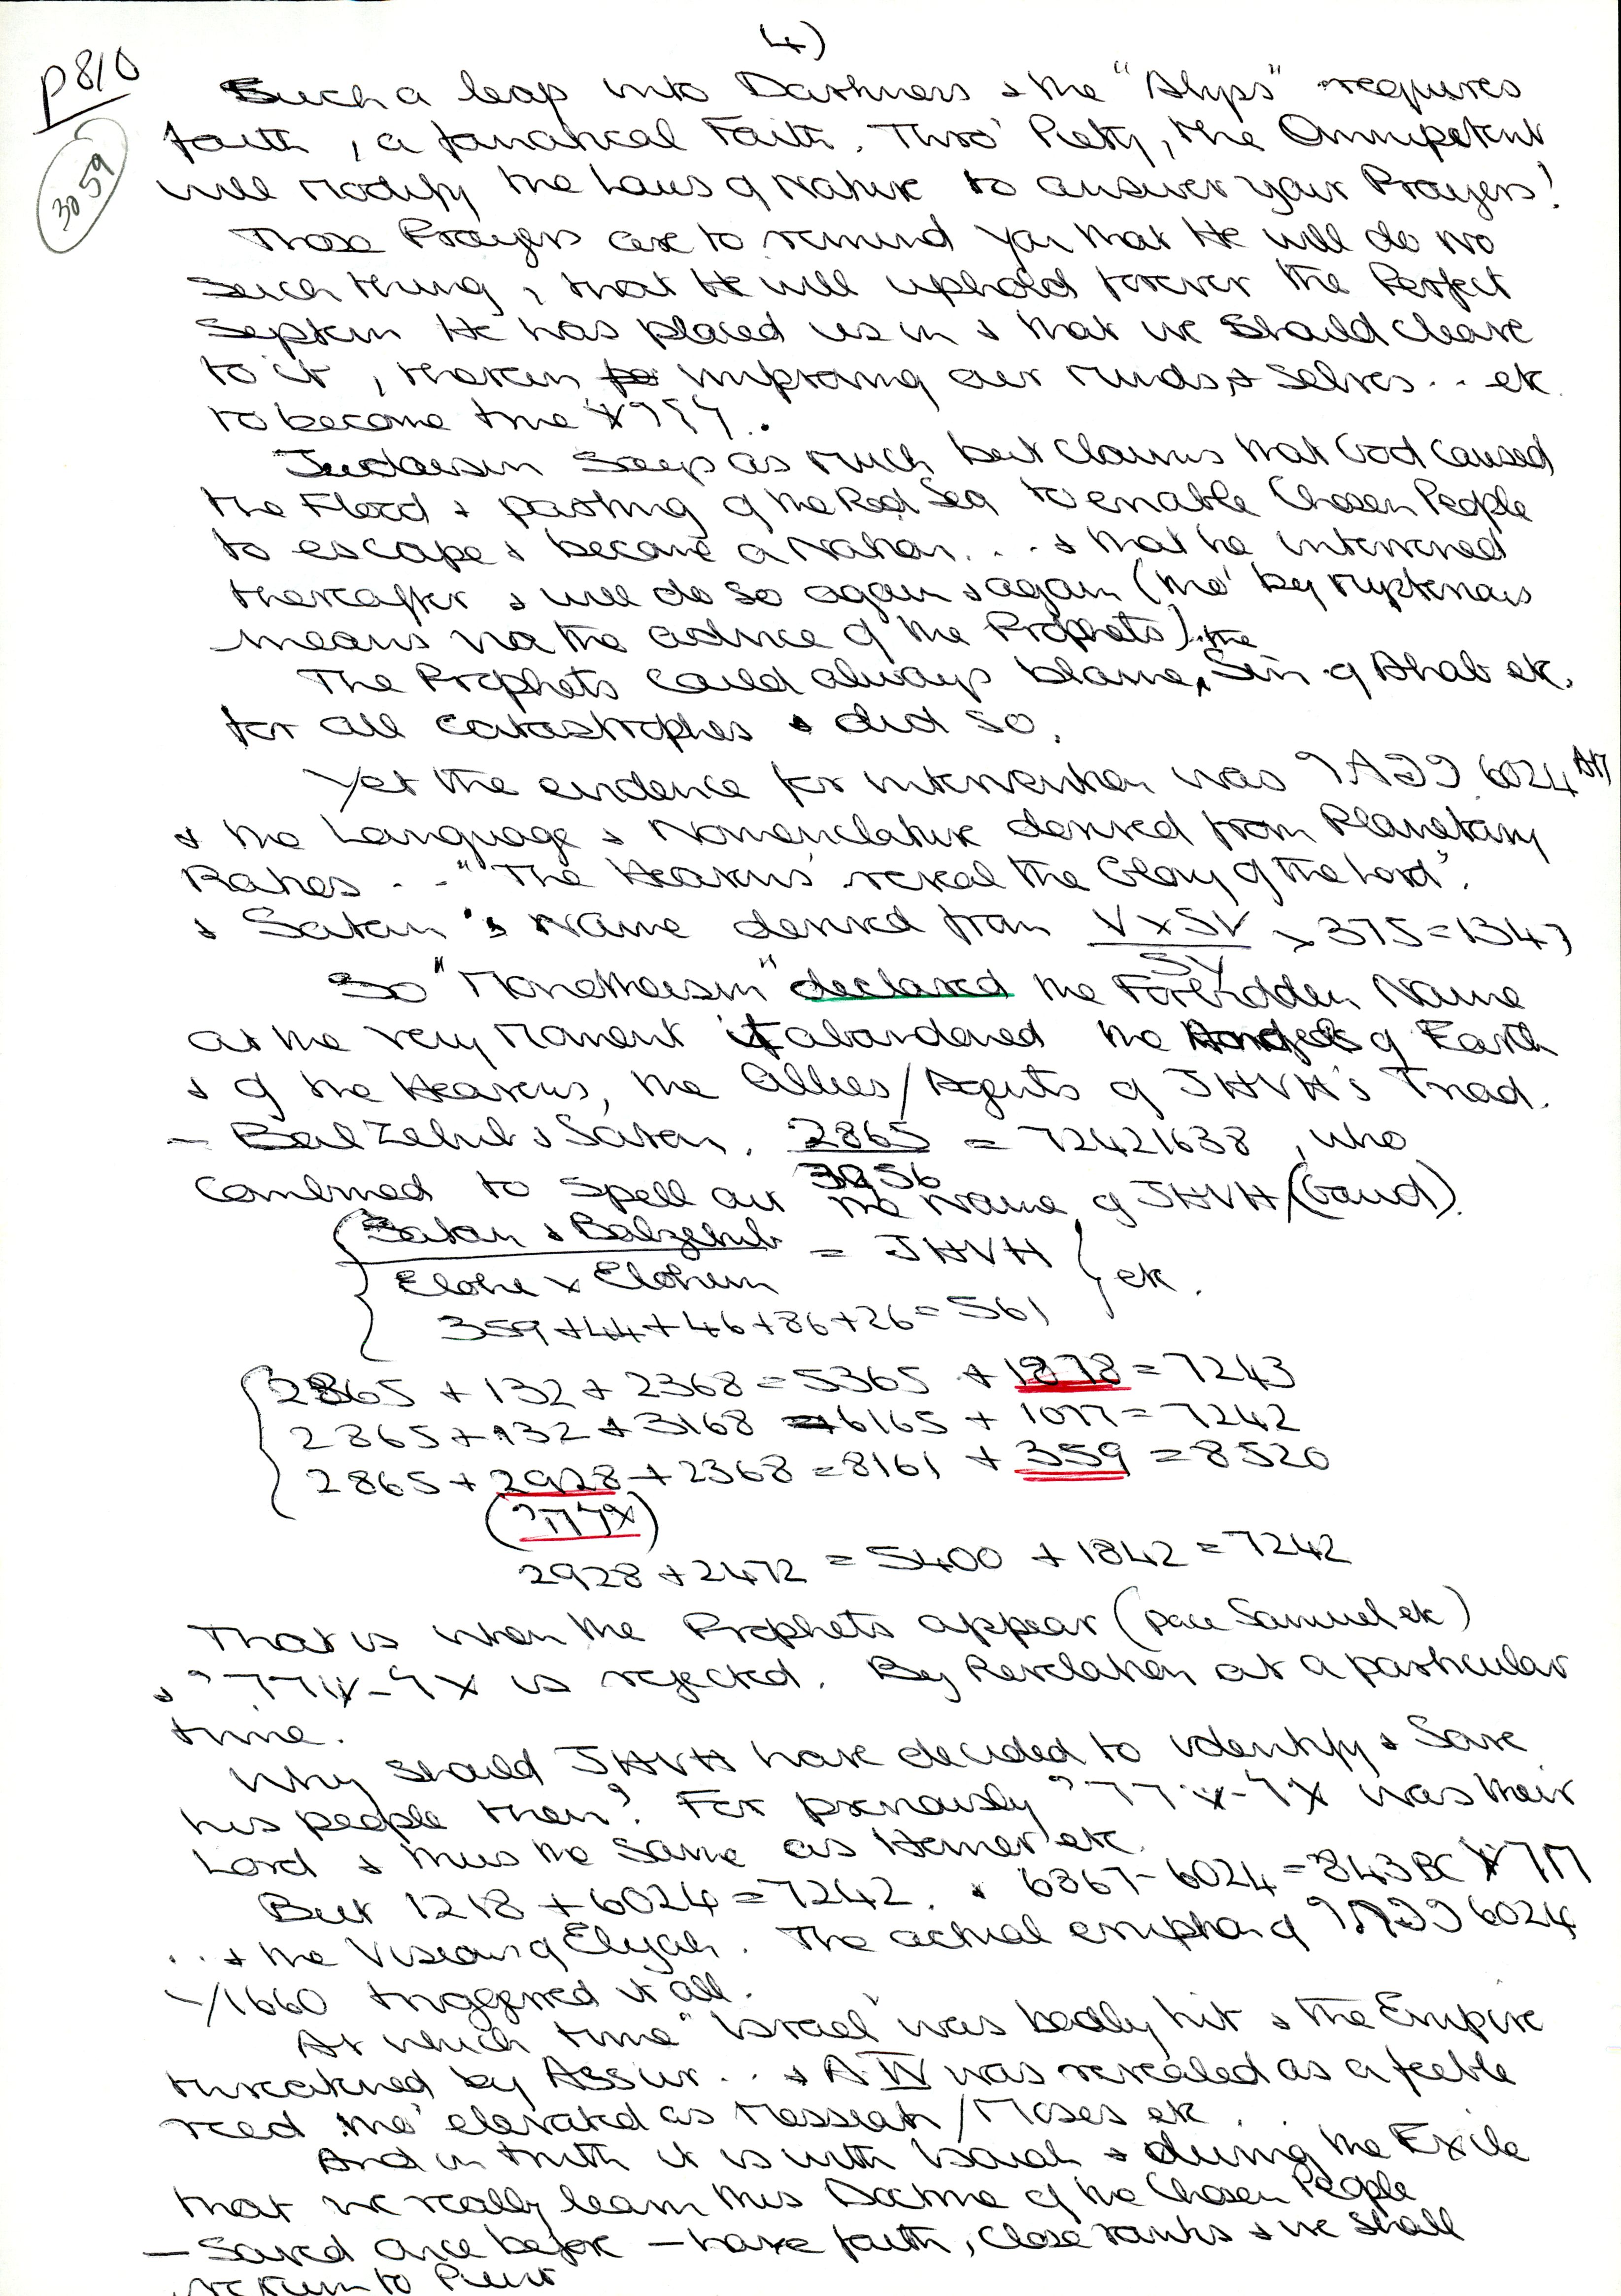 4)
P810
3059
Such a leap into Darkness & the "Abyss" requires
faith, a fanatical Faith. Thro' Piety, the Omnipotent
will modify the Laws of Nature to answer your Prayers!
Those Prayers are to remind you that He will do no
such thing, that He will uphold forever the Perfect
System He has placed us in & that we should cleave
to it, therein improving our minds, & selves.. etc.
to become true
Judaism says as much but claims that God caused
the Flood & parting of the Red Sea to enable Chosen People
to escape & become a Nation... & that he intervened
thereafter & will do so again & again (tho' by mysterious
means via the advice of the Prophets).
The Prophets could always blame the Sin of Ahab etc.
for all catastrophes & did so.
Yet the evidence for intervention was 6024 AM
& the Language & Nomenclature derived from Planetary
Rates .. "The Heavens reveal the Glory of the Lord".
& Satan's Name derived from V x SV / SY x 375 = 1347
So "Monotheism" declared the Forbidden Name
at the very Moment it abandoned the Angels of Earth
& of the Heavens, the Allies/Agents of JHVH's Triad.
- BalZebub & Satan. 2865 / 3956 = 72421638, who
combined to spell out the Name of JHVH/(Gaud).
{ Satan & Balzebub / Elohe x Elohim = JHVH } etc.
359+44+46+86+26=561
2865 + 132 + 2368 = 5365 + 1878 = 7243
2865 + 132 + 3168 = 6165 + 1077 = 7242
2865 + 2928 + 2368 = 8161 + 359 = 8520
2928 + 2472 = 5400 + 1842 = 7242
That is when the Prophets appear (pace Samuel etc)
& is rejected. By Revelation at a particular
time.
Why should JHVH have decided to identify & Save
his people then? For previously was their
Lord & thus the same as Homer etc.
But 1218 + 6024 = 7242. & 6867 - 6024 = 843 BC
.. & the Vision of Elijah. The actual eruption of 6024
-/1660 triggered it all.
At which time "Israel" was badly hit & the Empire
threatened by Assur... & A IV was revealed as a feeble
reed tho' elevated as Messiah/Moses etc.
And in truth it is with Isaiah & during the Exile
that we really learn this Doctrine of the Chosen People
- Saved once before - have faith, close ranks & we shall
return to